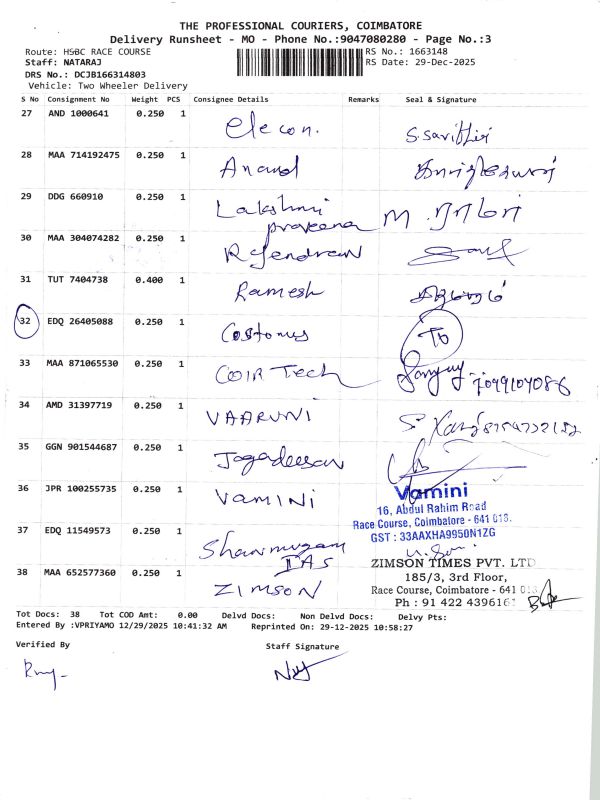 THE PROFESSIONAL COURIERS, COIMBATORE
Delivery Runsheet - MO - Phone No.:9047080280 - Page No.:3
Route: HSBC RACE COURSE RS No.: 1663148
Staff: NATARAJ RS Date: 29-Dec-2025
DRS No.: DCJB166314803
Vehicle: Two Wheeler Delivery
S No Consignment No Weight PCS Consignee Details Remarks Seal & Signature
27 AND 1000641 0.250 1 Elecon. S.Savithiri
28 MAA 714192475 0.250 1 Anand
29 DDG 660910 0.250 1 Lakshmi
praveena M
30 MAA 304074282 0.250 1 Rajendran
31 TUT 7404738 0.400 1 Ramesh
32 EDQ 26405088 0.250 1 Costomes To
33 MAA 871065530 0.250 1 COIR Tech
34 AMD 31397719 0.250 1 VAARUNI
35 GGN 901544687 0.250 1 Jagadeesan
36 JPR 100255735 0.250 1 VAMINI
Vamini
16, Abdul Rahim Road
Race Course, Coimbatore - 641 018.
GST : 33AAXHA9950N1ZG
37 EDQ 11549573 0.250 1 Shanmugam
IAS
38 MAA 652577360 0.250 1 ZIMSON
ZIMSON TIMES PVT. LTD
185/3, 3rd Floor,
Race Course, Coimbatore - 641 018
Ph : 91 422 4396161
Tot Docs: 38 Tot COD Amt: 0.00 Delvd Docs: Non Delvd Docs: Delvy Pts:
Entered By :VPRIYAMO 12/29/2025 10:41:32 AM Reprinted On: 29-12-2025 10:58:27
Verified By Staff Signature